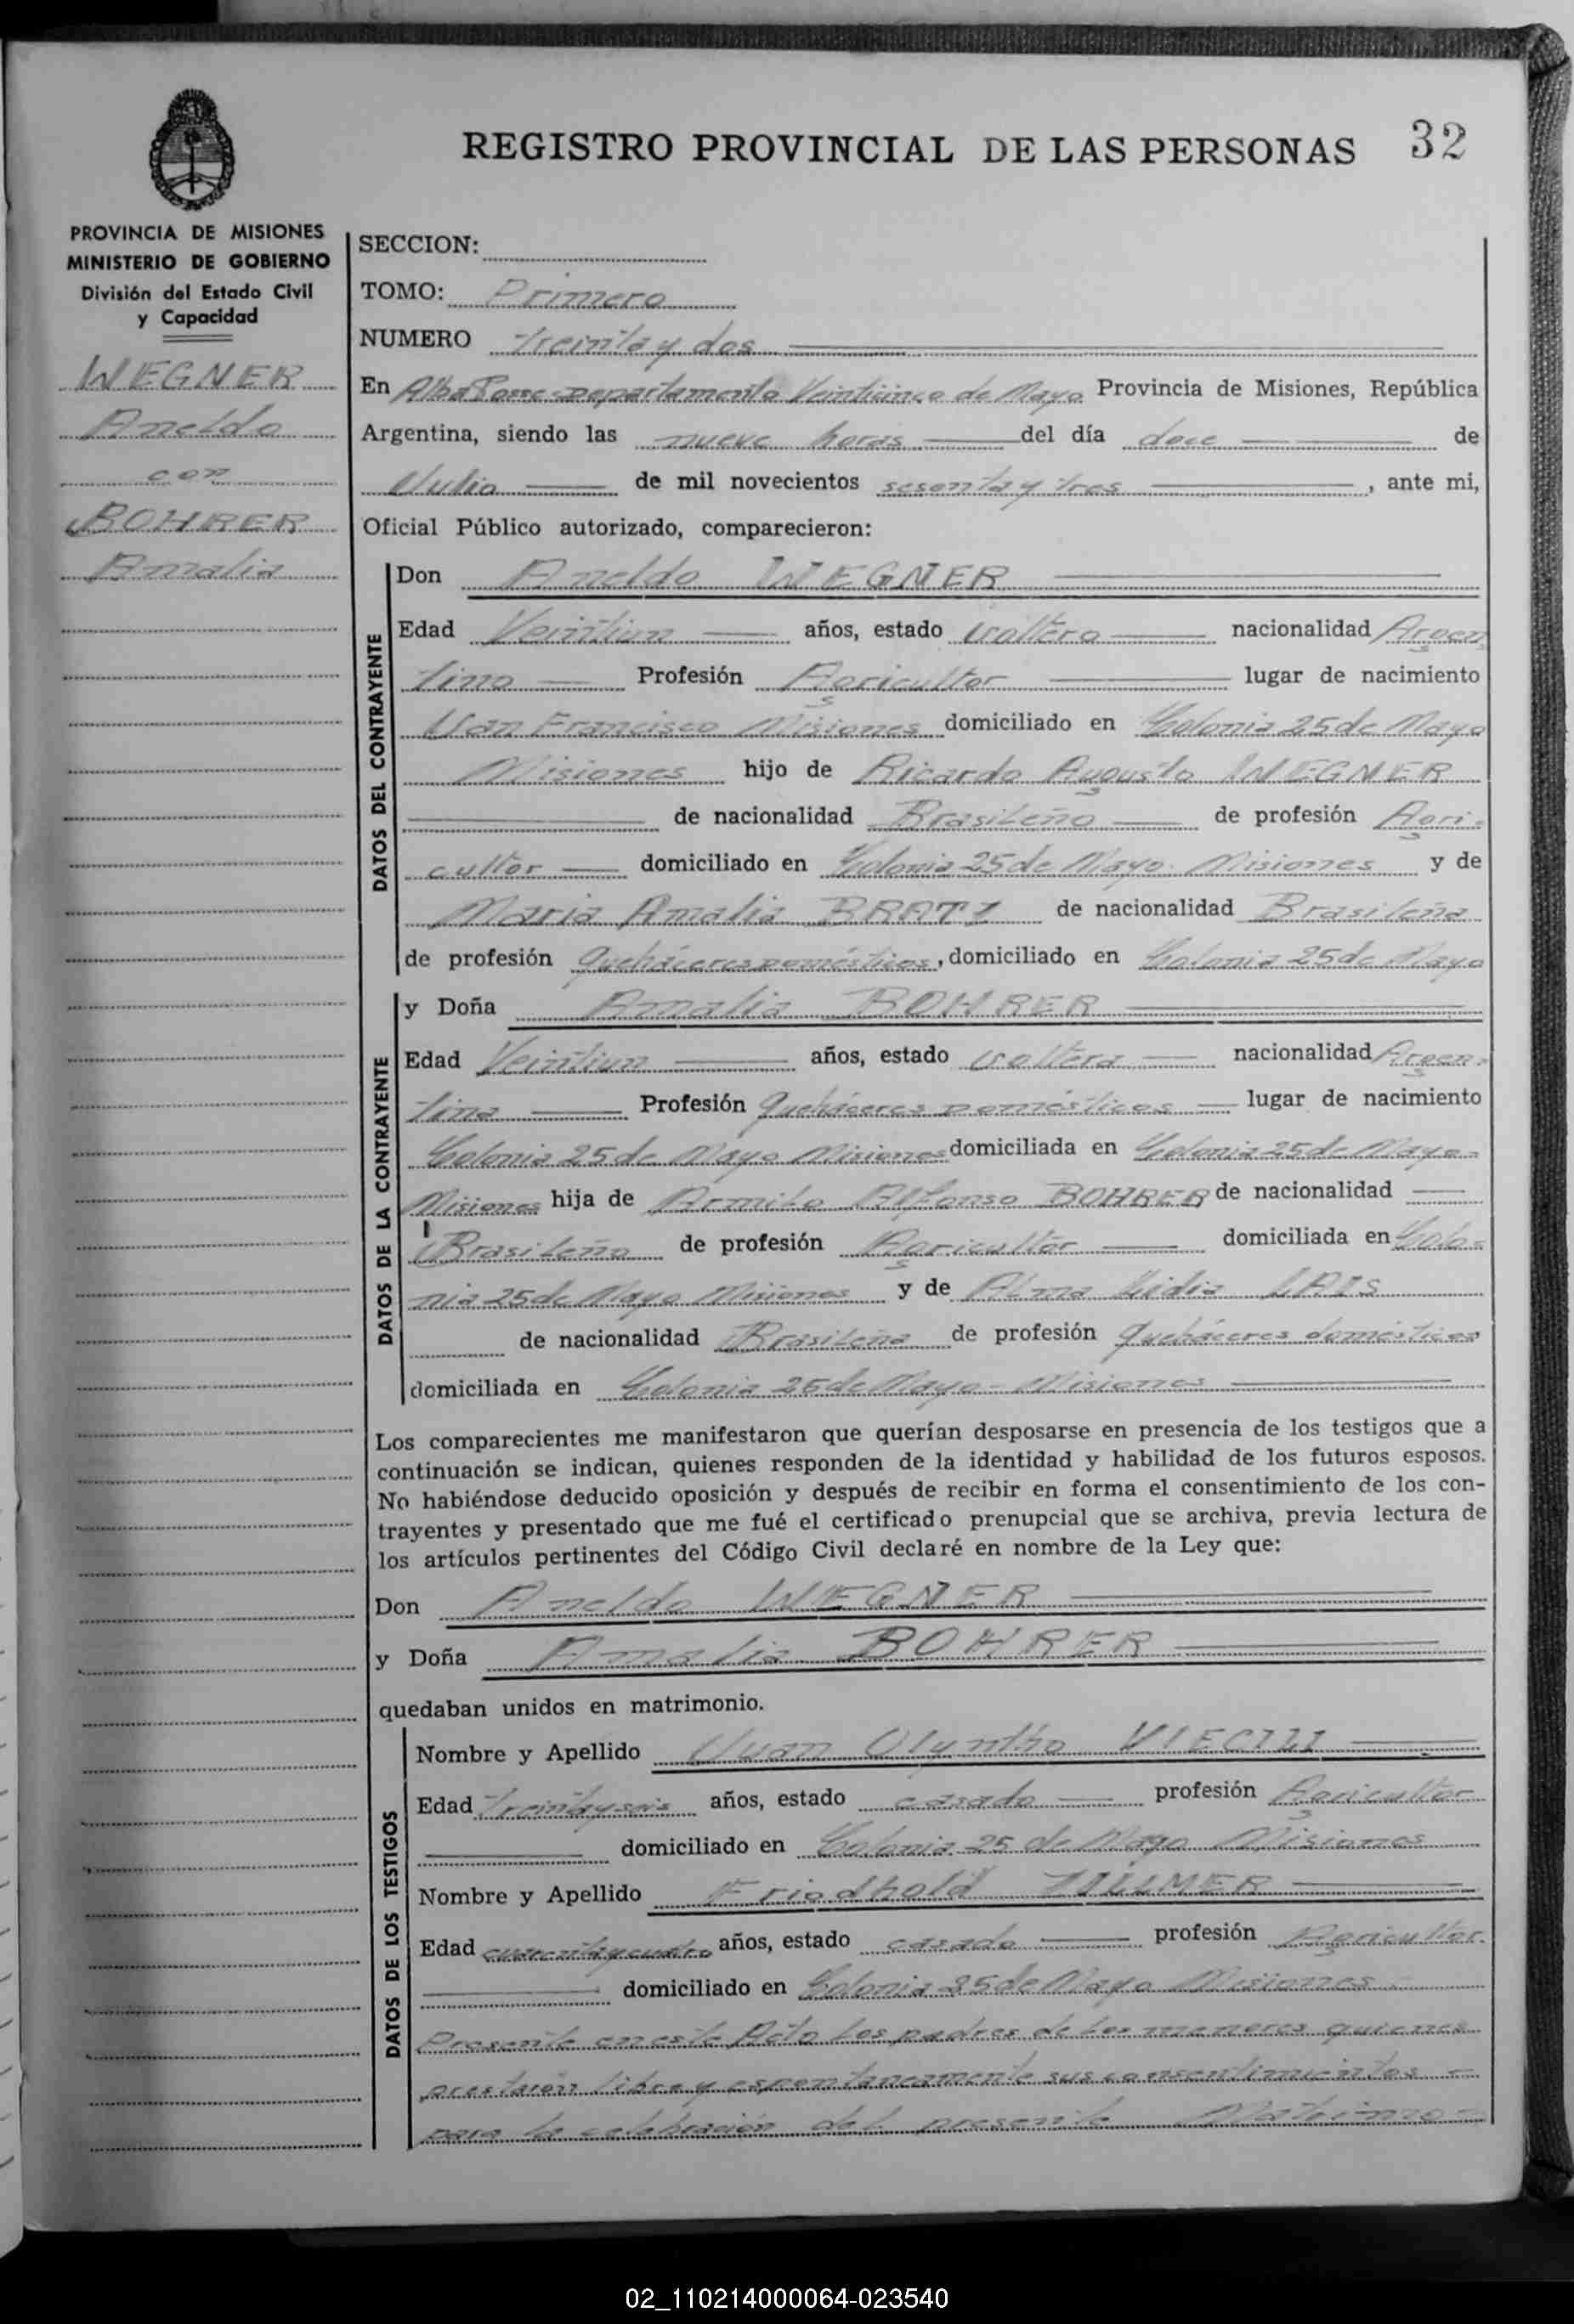 REGISTRO PROVINCIAL DE LAS PERSONAS 32
PROVINCIA DE MISIONES
MINISTERIO DE GOBIERNO
División del Estado Civil
y Capacidad
WEGNER
Aneldo
con
BOHRER
Amalia
SECCION:
TOMO: Primero
NUMERO Treinta y dos
En Alba Posse Departamento Veinticinco de Mayo Provincia de Misiones, República
Argentina, siendo las nueve horas del día doce de
Julio de mil novecientos sesenta y tres, ante mi,
Oficial Público autorizado, comparecieron:
DATOS DEL CONTRAYENTE
Don Aneldo WEGNER
Edad Veintiun años, estado soltero nacionalidad Argen
tino Profesión Agricultor lugar de nacimiento
San Francisco Misiones domiciliado en Colonia 25 de Mayo
Misiones hijo de Ricardo Augusto WEGNER
de nacionalidad Brasileño de profesión Agri-
cultor domiciliado en Colonia 25 de Mayo Misiones y de
Maria Amalia BRATZ de nacionalidad Brasileña
de profesión Quehaceres Domésticos, domiciliado en Colonia 25 de Mayo
DATOS DE LA CONTRAYENTE
y Doña Amalia BOHRER
Edad Veintiun años, estado soltera nacionalidad Argen-
tina Profesión Quehaceres Domésticos lugar de nacimiento
Colonia 25 de Mayo Misiones domiciliada en Colonia 25 de Mayo-
Misiones hija de Armilo Alfonso BOHRER de nacionalidad
Brasileño de profesión Agricultor domiciliada en Colo-
nia 25 de Mayo Misiones y de Alma Lidia LAIS
de nacionalidad Brasileña de profesión Quehaceres domésticos
domiciliada en Colonia 25 de Mayo - Misiones
Los comparecientes me manifestaron que querían desposarse en presencia de los testigos que a
continuación se indican, quienes responden de la identidad y habilidad de los futuros esposos.
No habiéndose deducido oposición y después de recibir en forma el consentimiento de los con-
trayentes y presentado que me fué el certificado prenupcial que se archiva, previa lectura de
los artículos pertinentes del Código Civil declaré en nombre de la Ley que:
Don Aneldo WEGNER
y Doña Amalia BOHRER
quedaban unidos en matrimonio.
DATOS DE LOS TESTIGOS
Nombre y Apellido Juan Olyntho VIECILI
Edad Treinta y seis años, estado casado profesión Agricultor
domiciliado en Colonia 25 de Mayo Misiones
Nombre y Apellido Friedhold ZILLMER
Edad cuarenta y cuatro años, estado casado profesión Agricultor.
domiciliado en Colonia 25 de Mayo Misiones
Presente en este Acto los padres de los menores quienes
prestaron libre y espontaneamente sus consentimientos -
para la celebración del presente Matrimo-
02_110214000064-023540